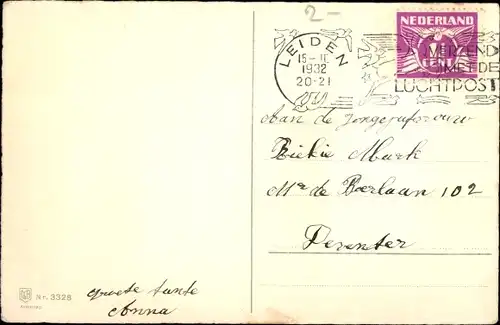 2-
NEDERLAND
LEIDEN
15-II
1932
20-21
VERZENDT
MET DE
LUCHTPOST
CENT
Aan de Jongejufvrouw
Riekie Mark
Mr de Boerlaan 102
Deventer
groete tante
Anna
Nr. 3328